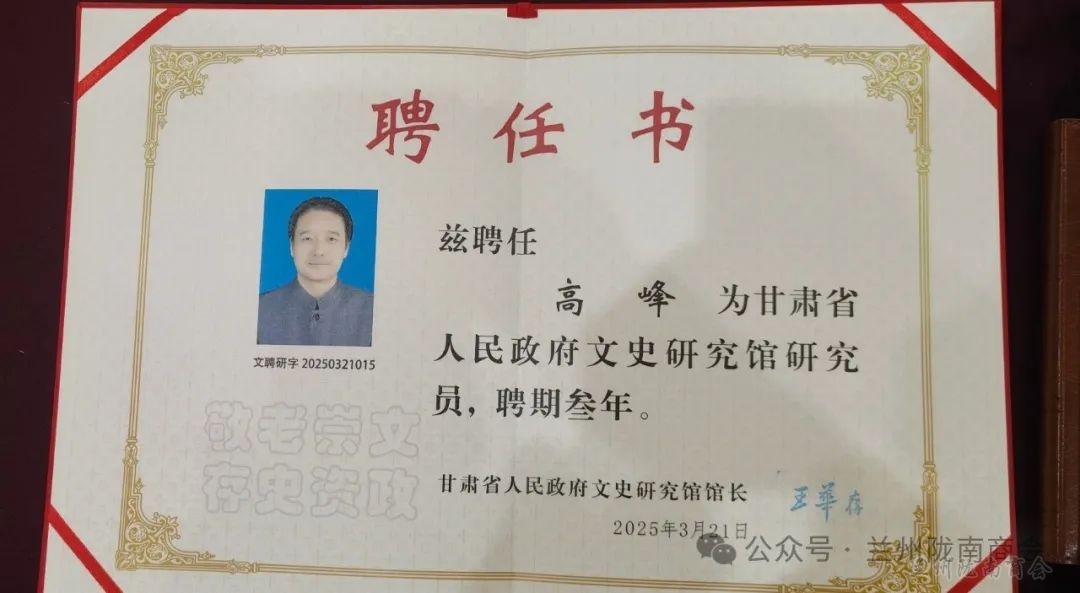 聘任书
兹聘任
高 峰 为甘肃省
人民政府文史研究馆研究
员，聘期叁年。
文聘研字 20250321015
敬老崇文
存史资政
甘肃省人民政府文史研究馆馆长 王华存
2025年3月21日
公众号·兰州陇南商会
兰州陇南商会